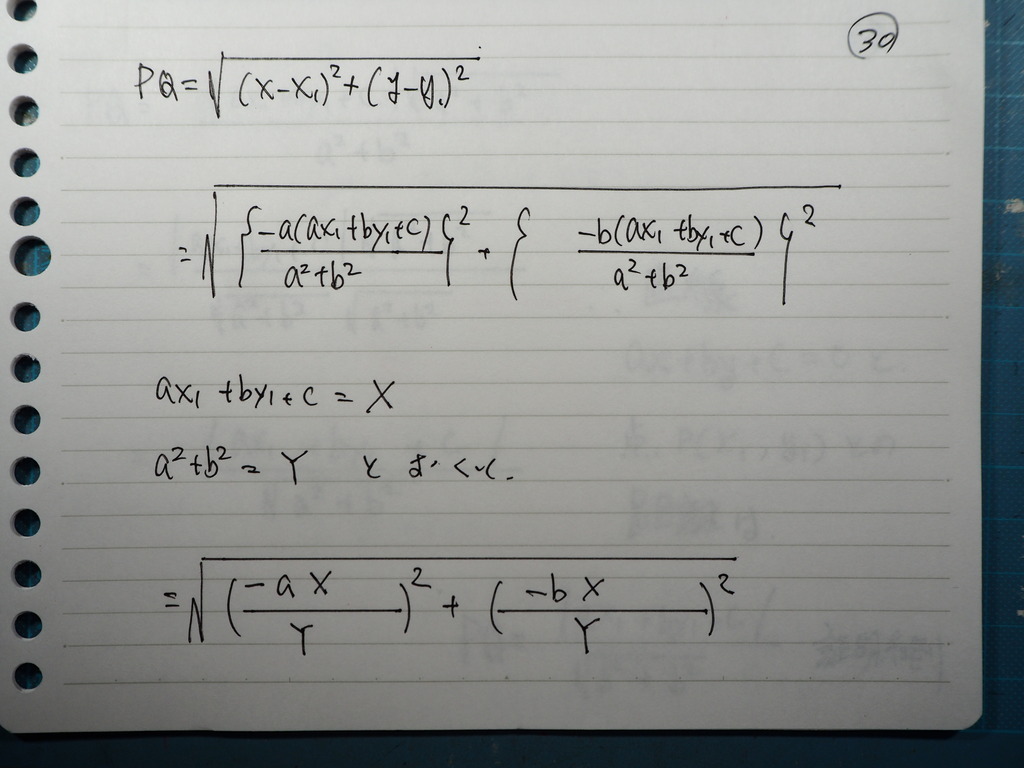 30
PQ = √((x-x₁)²+(y-y₁)²)
= √({-a(ax₁+by₁+c)/a²+b²}² + {-b(ax₁+by₁+c)/a²+b²}²)
ax₁+by₁+c = X
a²+b² = Y とおくと.
= √((-aX/Y)² + (-bX/Y)²)